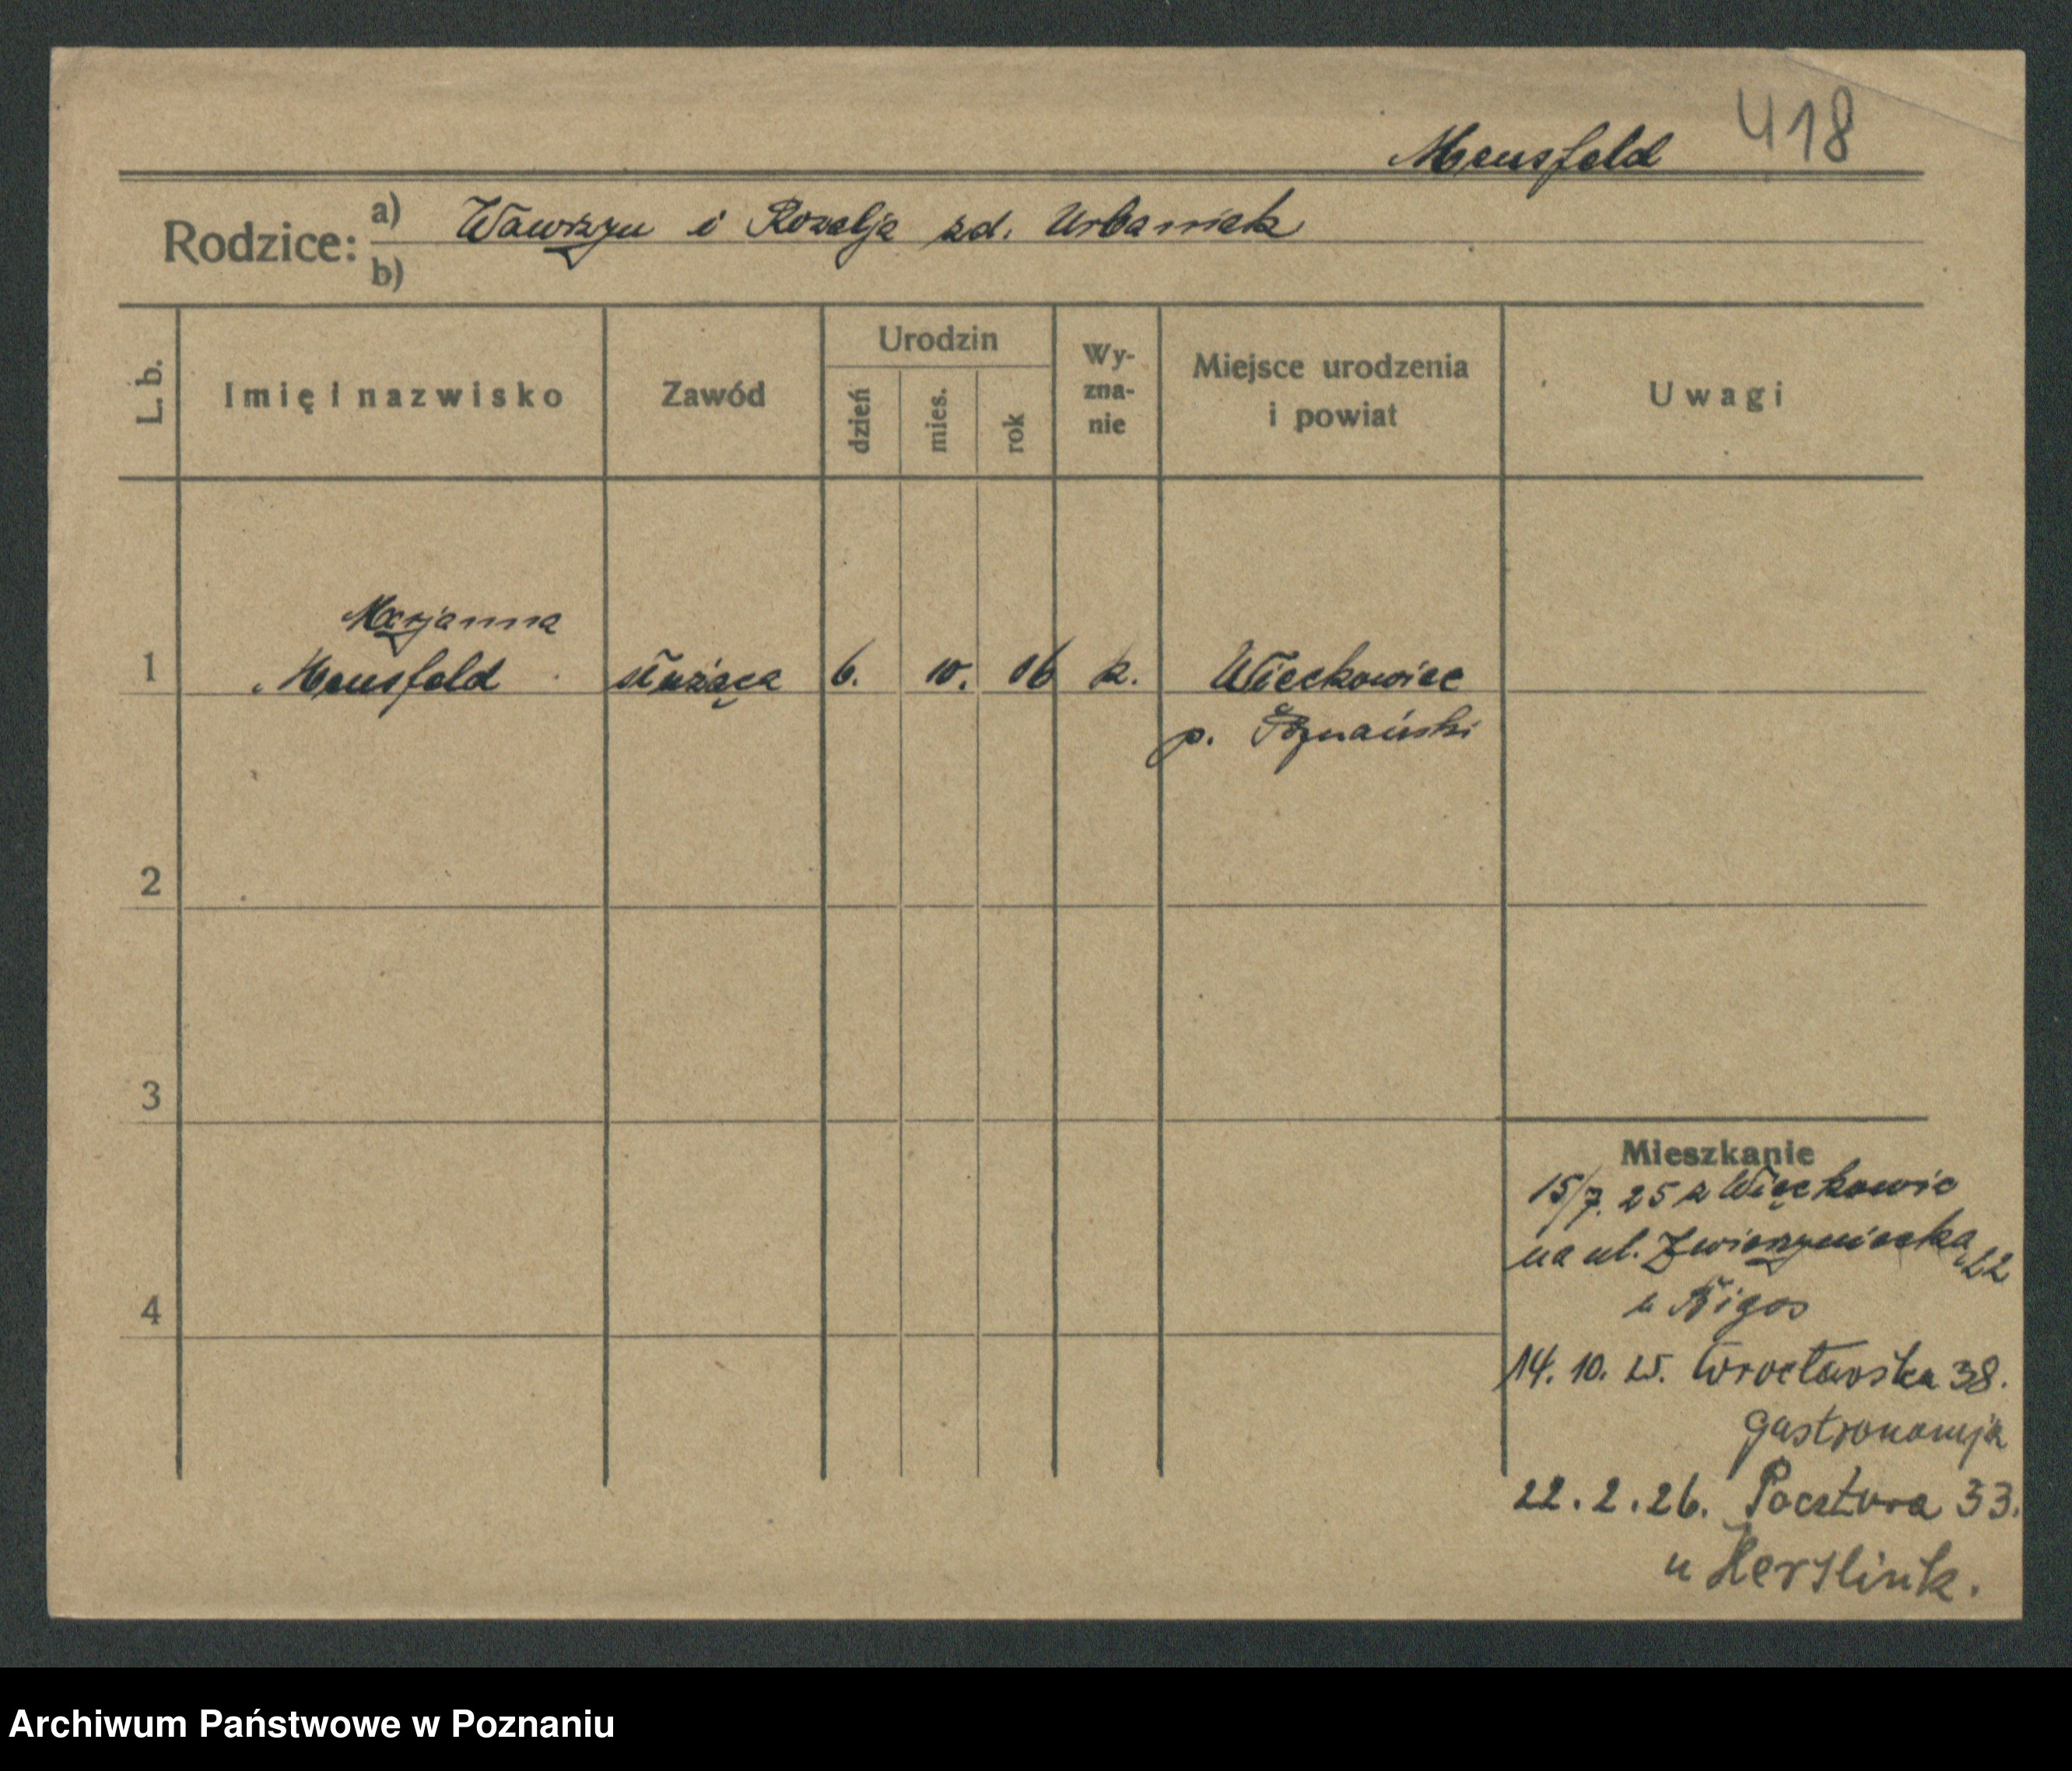 418
Mensfeld
Rodzice:
a) Wawrzyn i Rozalja zd. Urbaniak
b)
L. b.
Imię i nazwisko
Zawód
Urodzin
dzień
mies.
rok
Wy-
zna-
nie
Miejsce urodzenia
i powiat
Uwagi
Marjanna
1 Mensfeld służąca 6. 10. 06 k. Wieckowice
p. Poznański
2
3
4
Mieszkanie
15/7. 25 z Więckowic
na ul. Zwierzyniecka 22
u Bigos
14. 10. 25. Wrocławska 38.
gastronomja
22. 2. 26. Pocztowa 33.
u
Archiwum Państwowe w Poznaniu